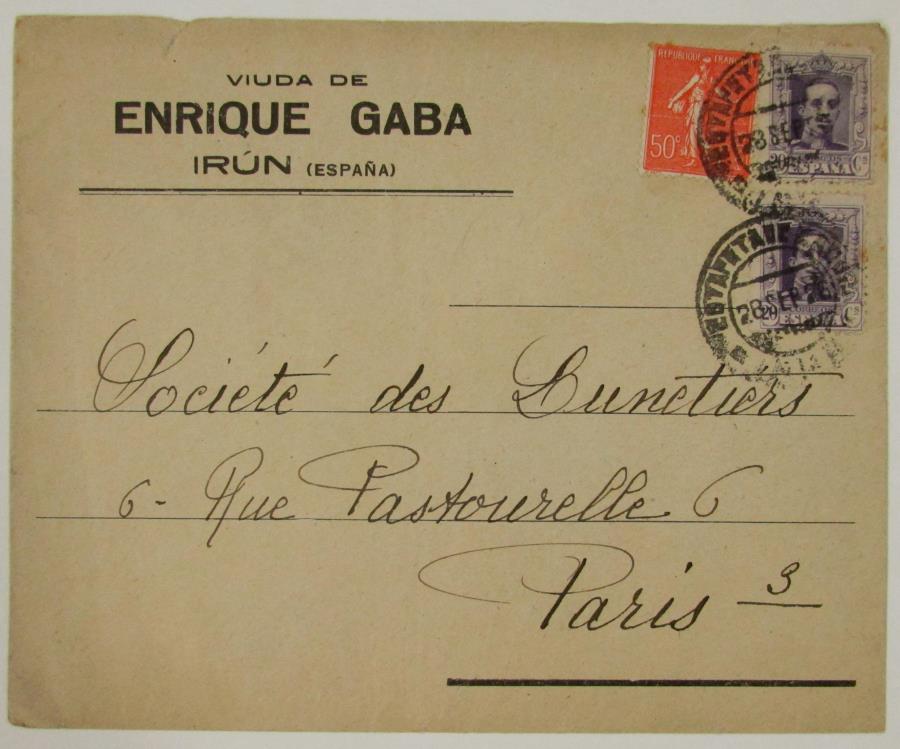 VIUDA DE
ENRIQUE GABA
IRÚN (ESPAÑA)
REPUBLIQUE FRANÇAISE
50c
28 SEP
20 ESPAÑA Cs
28 SEP 26
20 Cs
Société des Lunetiers
6- Rue Pastourelle 6
Paris 3